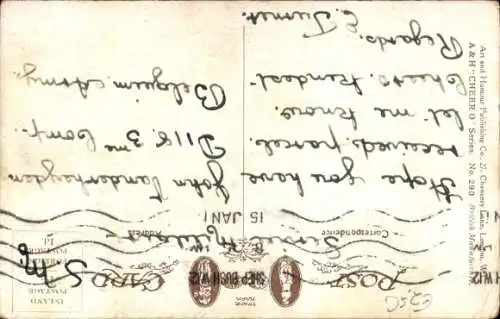 POST CARD
TRADE
MARK
SHEP BUSH W12
15 JAN 1
S. M.
INLAND
POSTAGE
Correspondence
Address
Hope you have
received parcel.
let me know.
Cheero. Kindest
Regards.
E. Turner.
John Vanderheyden
D 118. 3me Comp.
Belgium Army.
Art and Humour Publishing Co., 27, Chancery Lane, London, W.
A & H "CHEER O" Series. No. 290 British Manufacture